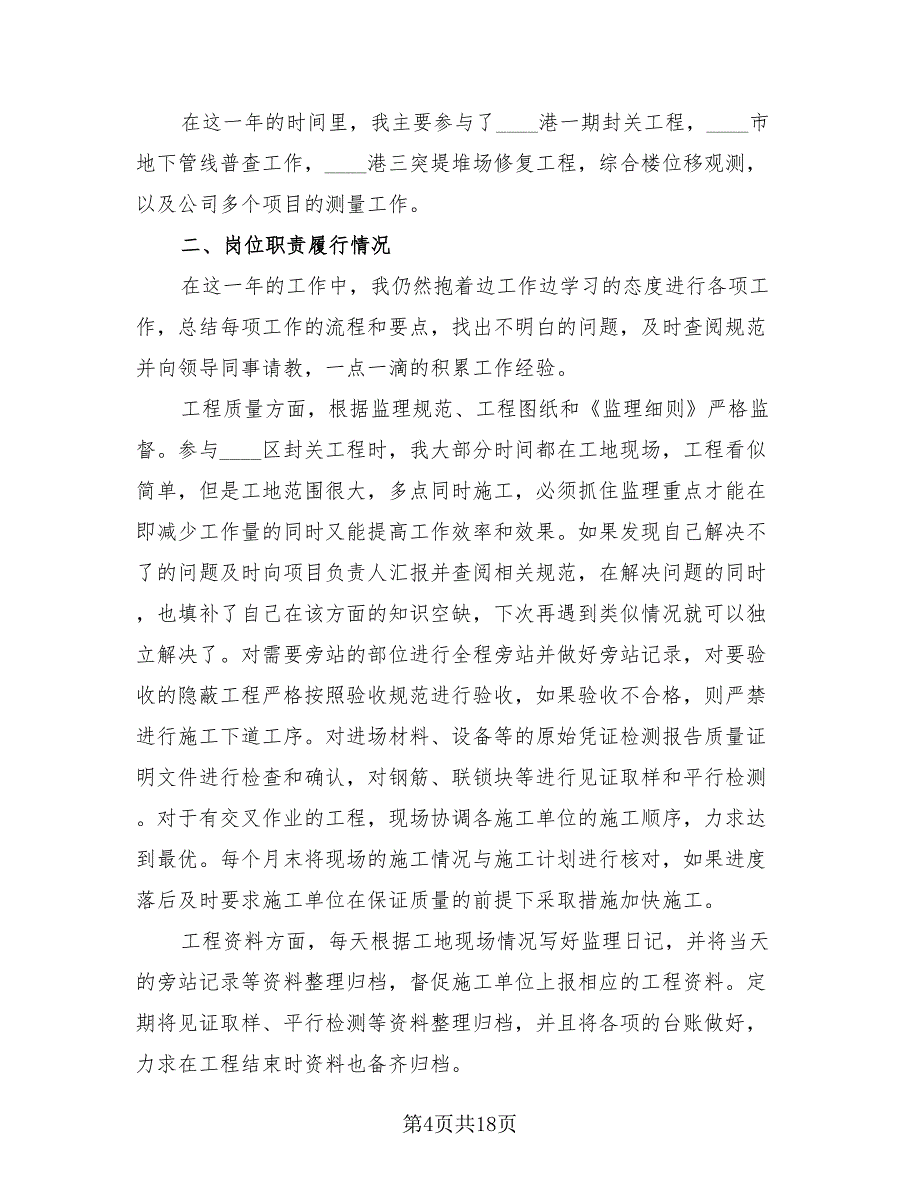 在这一年的时间里，我主要参与了____港一期封关工程，____市
地下管线普查工作，____港三突堤堆场修复工程，综合楼位移观测，
以及公司多个项目的测量工作。
二、岗位职责履行情况
在这一年的工作中，我仍然抱着边工作边学习的态度进行各项工
作，总结每项工作的流程和要点，找出不明白的问题，及时查阅规范
并向领导同事请教，一点一滴的积累工作经验。
工程质量方面，根据监理规范、工程图纸和《监理细则》严格监
督。参与____区封关工程时，我大部分时间都在工地现场，工程看似
简单，但是工地范围很大，多点同时施工，必须抓住监理重点才能在
即减少工作量的同时又能提高工作效率和效果。如果发现自己解决不
了的问题及时向项目负责人汇报并查阅相关规范，在解决问题的同时
，也填补了自己在该方面的知识空缺，下次再遇到类似情况就可以独
立解决了。对需要旁站的部位进行全程旁站并做好旁站记录，对要验
收的隐蔽工程严格按照验收规范进行验收，如果验收不合格，则严禁
进行施工下道工序。对进场材料、设备等的原始凭证检测报告质量证
明文件进行检查和确认，对钢筋、联锁块等进行见证取样和平行检测
。对于有交叉作业的工程，现场协调各施工单位的施工顺序，力求达
到最优。每个月末将现场的施工情况与施工计划进行核对，如果进度
落后及时要求施工单位在保证质量的前提下采取措施加快施工。
工程资料方面，每天根据工地现场情况写好监理日记，并将当天
的旁站记录等资料整理归档，督促施工单位上报相应的工程资料。定
期将见证取样、平行检测等资料整理归档，并且将各项的台账做好，
力求在工程结束时资料也备齐归档。
第4页共18页